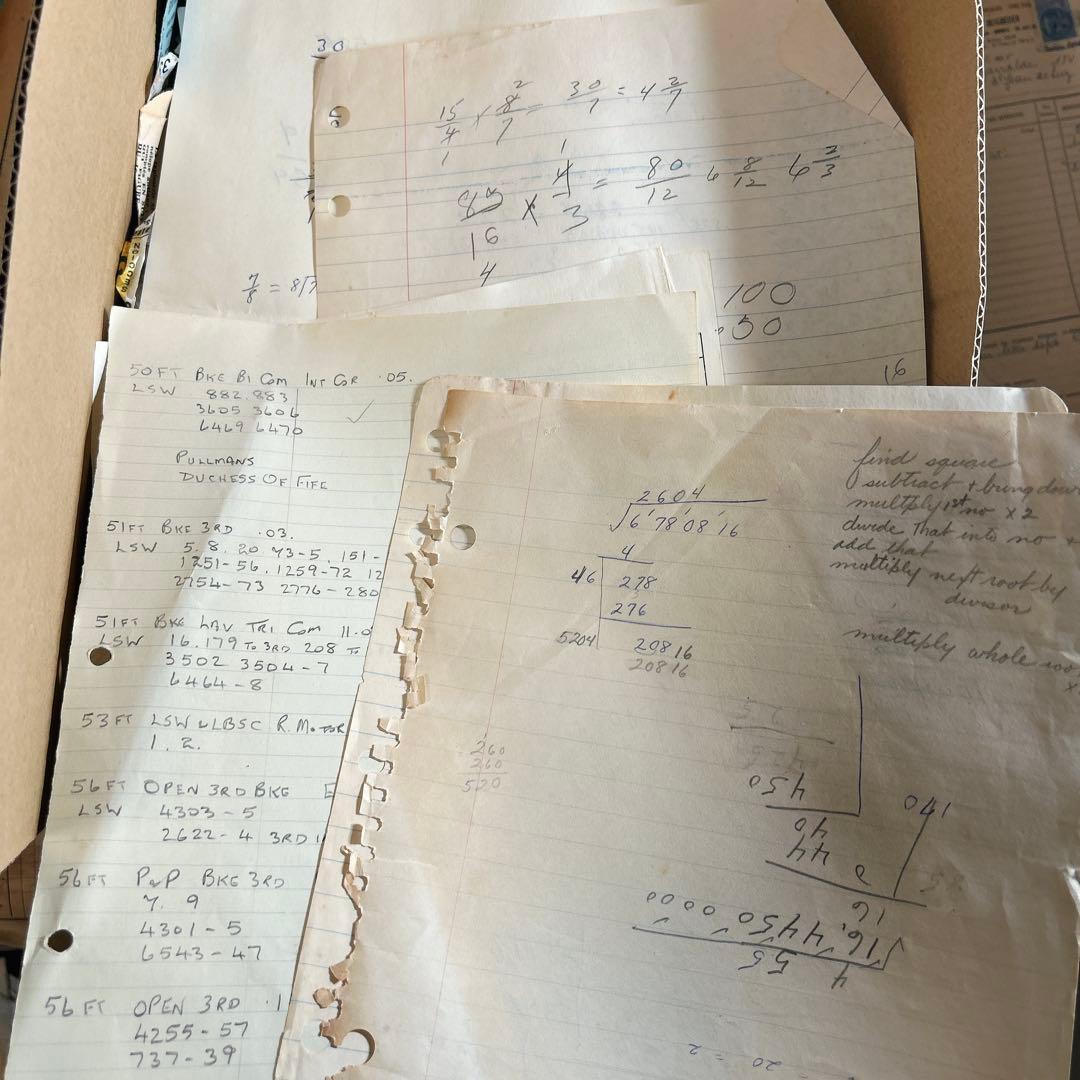 30
15/4 × 8/7 = 30/7 = 4 2/7
1
2
80/16 × 4/3 = 80/12 6 8/12 6 2/3
4
1
7/8 = 8√7
100
.50
16
50FT BKE BI COM INT COR .05.
LSW 882.883
3605 3606
6469 6470
PULLMANS
DUCHESS OF FIFE
51FT BKE 3RD .03.
LSW 5. 8. 20 73-5. 151-
1251-56. 1259-72 12
2754-73 2776-280
51FT BKE LAV TRI COM 11.0
LSW 16. 179 TO 3RD 208 TO
3502 3504-7
6464-8
53FT LSW & LBSC R. MOTOR
1. 2.
56FT OPEN 3RD BKE
LSW 4303-5
2622-4 3RD
56FT P&P BKE 3RD
7. 9
4301-5
6543-47
56FT OPEN 3RD .1
4255-57
737-39
2604
√6'78'08'16
4
46 278
276
5204 20816
20816
260
260
520
find square
subtract + bring down
multiply 1st no × 2
divide that into no +
add that
multiply next root by
divisor
multiply whole
×
4 55
√16,4450 0000
16
0 44
40
450
140
20 = 2